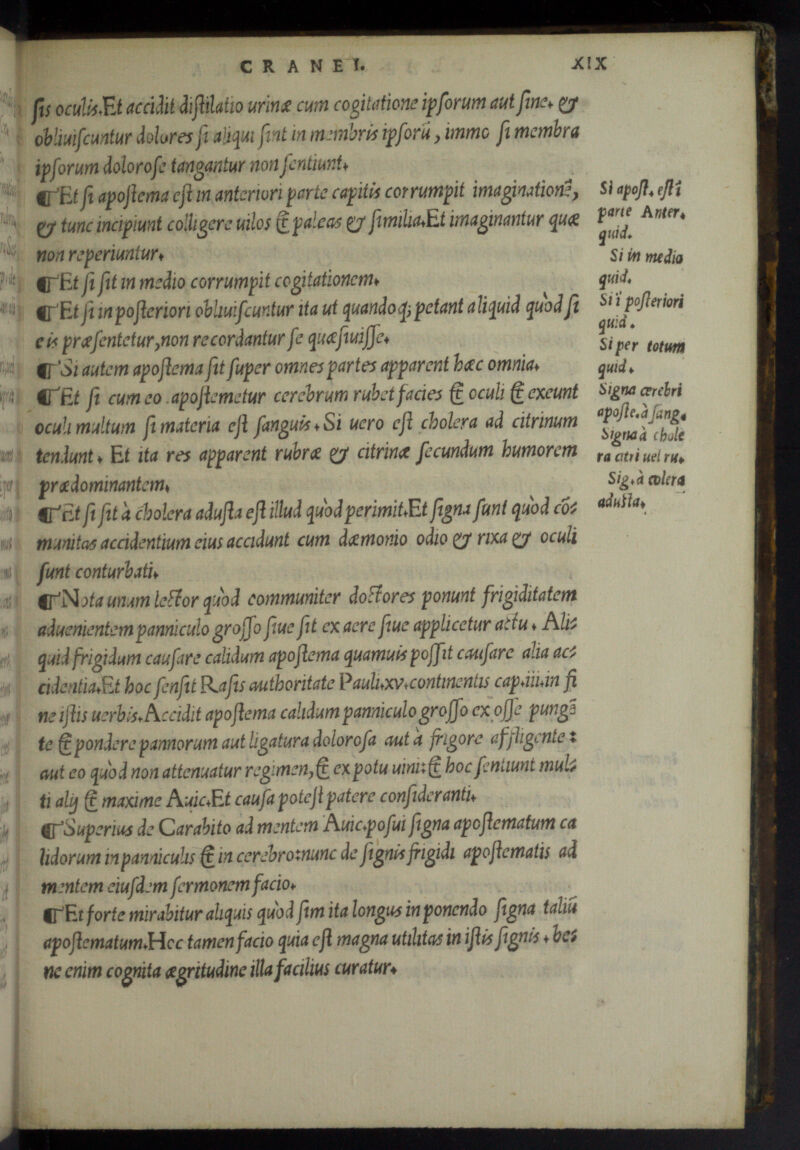 CRANEI. XIX
sis oculis.Et accidit distilatio urinæ cum cogitatione ipsorum aut sine. &
obliuiscuntur dolores si aliqui sint in membris ipsorũ, immo si membra
ipsorum dolorose tangantur non sentiunt.
¶Et si apostema est in anteriori parte capitis corrumpit imaginationẽ,
& tunc incipiunt colligere uilos & paleas & similia.Et imaginantur quæ
non reperiuntur.
¶Et si sit in medio corrumpit cogitationem.
¶Et si in posteriori obliuiscuntur ita ut quandoq; petant aliquid quòd si
eis præsentetur,non recordantur se quæsiuisse.
¶Si autem apostema sit super omnes partes apparent hæc omnia.
¶Et si cum eo apostemetur cerebrum rubet facies & oculi & exeunt
oculi multum si materia est sanguis.Si uero est cholera ad citrinum
tendunt. Et ita res apparent rubræ & citrinæ secundum humorem
prædominantem.
¶Et si sit à cholera adusta est illud quòd perimit.Et signa sunt quòd cõ-
munitas accidentium eius accidunt cum dæmonio odio & rixa & oculi
sunt conturbati.
¶Nota unum lector quòd communiter doctores ponunt frigiditatem
aduenientem panniculo grosso siue sit ex aere siue applicetur actu. Ali-
quid frigidum causare calidum apostema quamuis possit causare alia ac-
cidentia.Et hoc sensit Rasis authoritate Pauli.xv.continentis cap.iii.in fi
ne istis uerbis.Accidit apostema calidum panniculo grosso ex osse pungẽ
te & pondere pannorum aut ligatura dolorosa aut à frigore affligente:
aut eo quòd non attenuatur regimen,& ex potu uini:& hoc sentiunt mul-
ti alij & maxime Auic.Et causa potest patere consideranti.
¶Superius de Carabito ad mentem Auic.posui signa apostematum ca
lidorum in panniculis & in cerebro:nunc de signis frigidi apostematis ad
mentem eiusdem sermonem facio.
¶Et forte mirabitur aliquis quòd sim ita longus in ponendo signa taliũ
apostematum.Hec tamen facio quia est magna utilitas in istis signis. be-
ne enim cognita ægritudine illa facilius curatur.
Si apost. est ĩ
parte Anter.
quid.
Si in medio
quid.
Si ĩ posteriori
quid.
Si per totum
quid.
Signa cerebri
aposte.à sang.
Signa à chole
ra citri uel ru.
Sig.à colera
adusta.